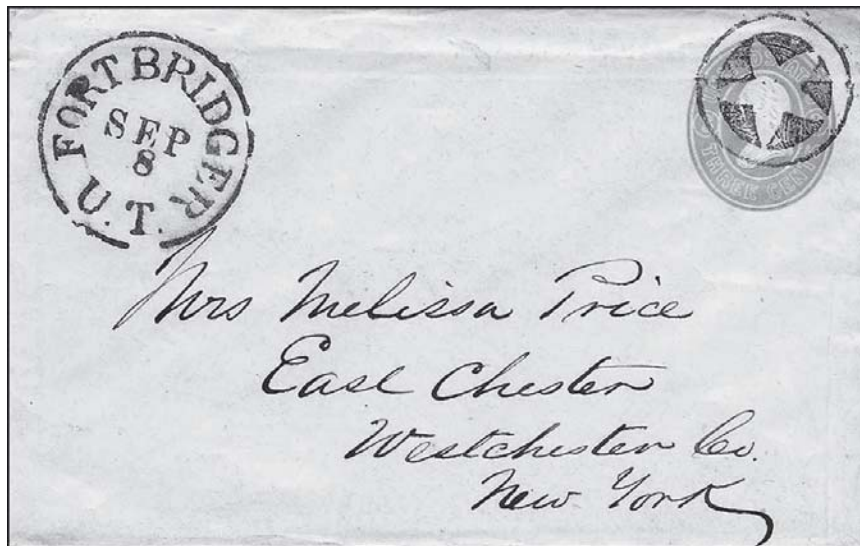 FORT BRIDGER
SEP
8
U.T.
THREE CENTS
Mrs Melissa Price
East Chester
Westchester Co.
New York